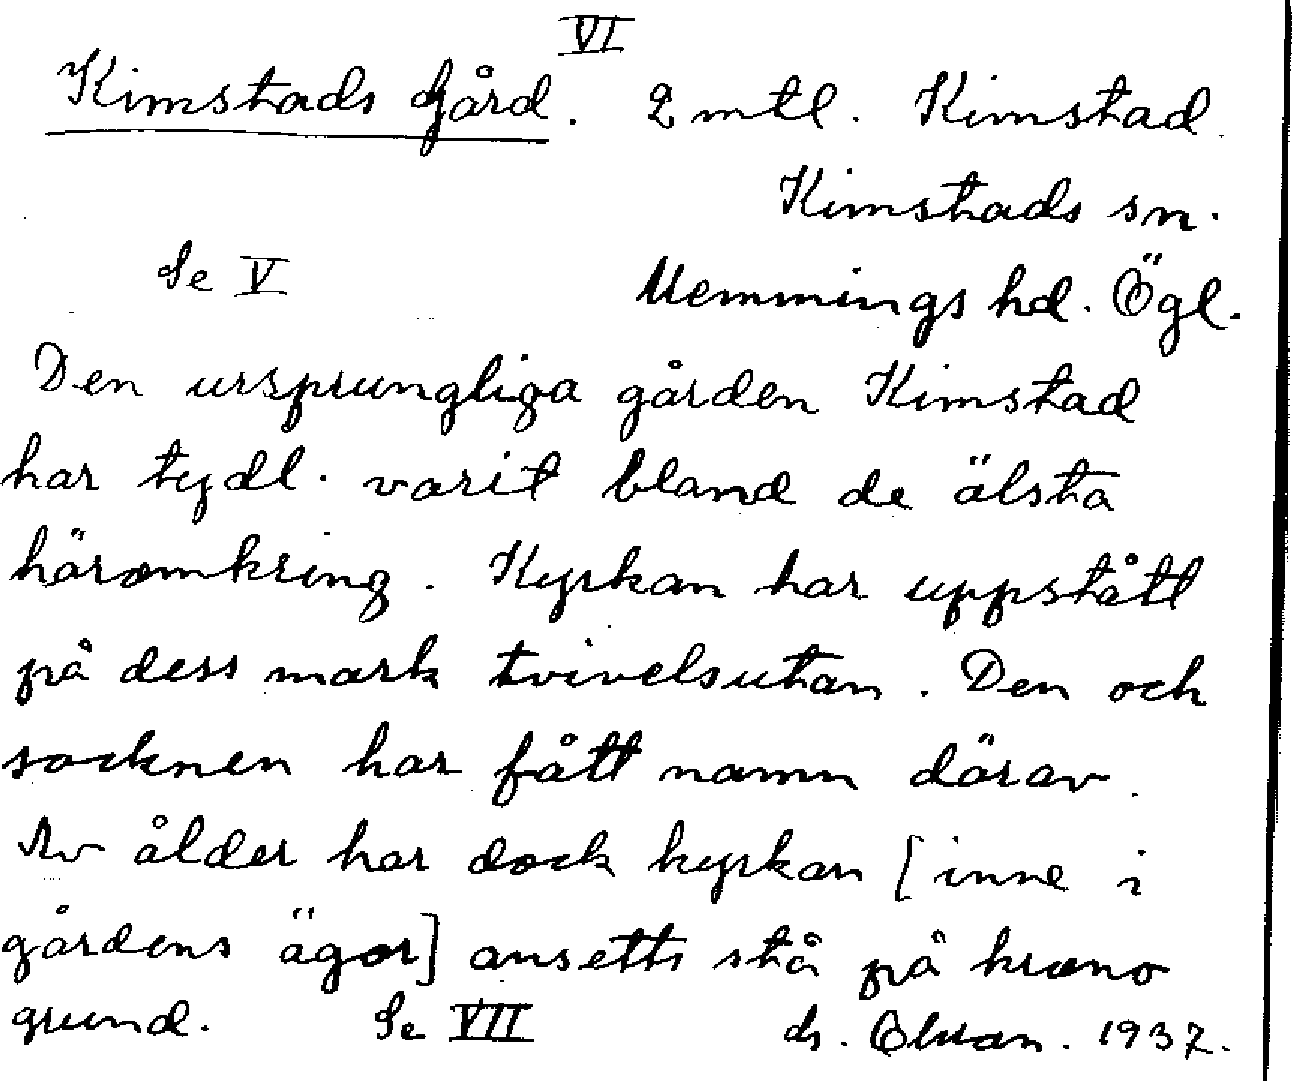 VI
Kimstads Gård. 2 mtl. Kimstad.
Kimstads sn.
Se V Memmings hd. Ögl.
Den ursprungliga gården Kimstad
har tydl. varit bland de älsta
häromkring. Kyrkan har uppstått
på dess mark tvivelsutan. Den och
socknen har fått namn därav.
Av ålder har dock kyrkan [inne i
gårdens ägor] ansetts stå på krono
grund. Se VII 1937.